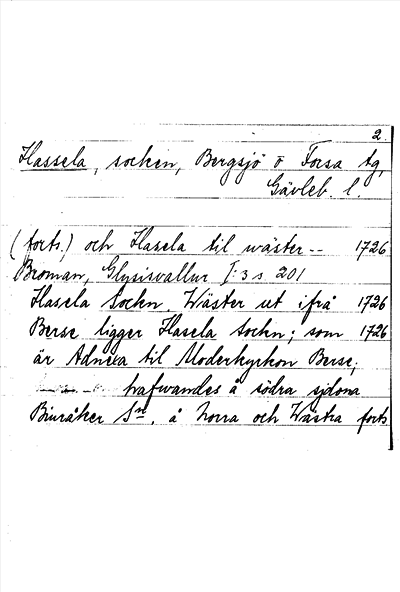 2.
Hassela, socken, Bergsjö o Forsa tg,
Gävleb. l.
(forts.) och Hasela til wäster -- 1726
Broman, Glysisvallur I:3 s 201
Hasela Sockn. Wäster ut ifrå 1726
Berse ligger Hasela Sockn; som 1726
är Adnexa til Moderkyrkon Berse;
hafwandes å södra sidona
Biuråker Sn, å Norra och Wästra forts